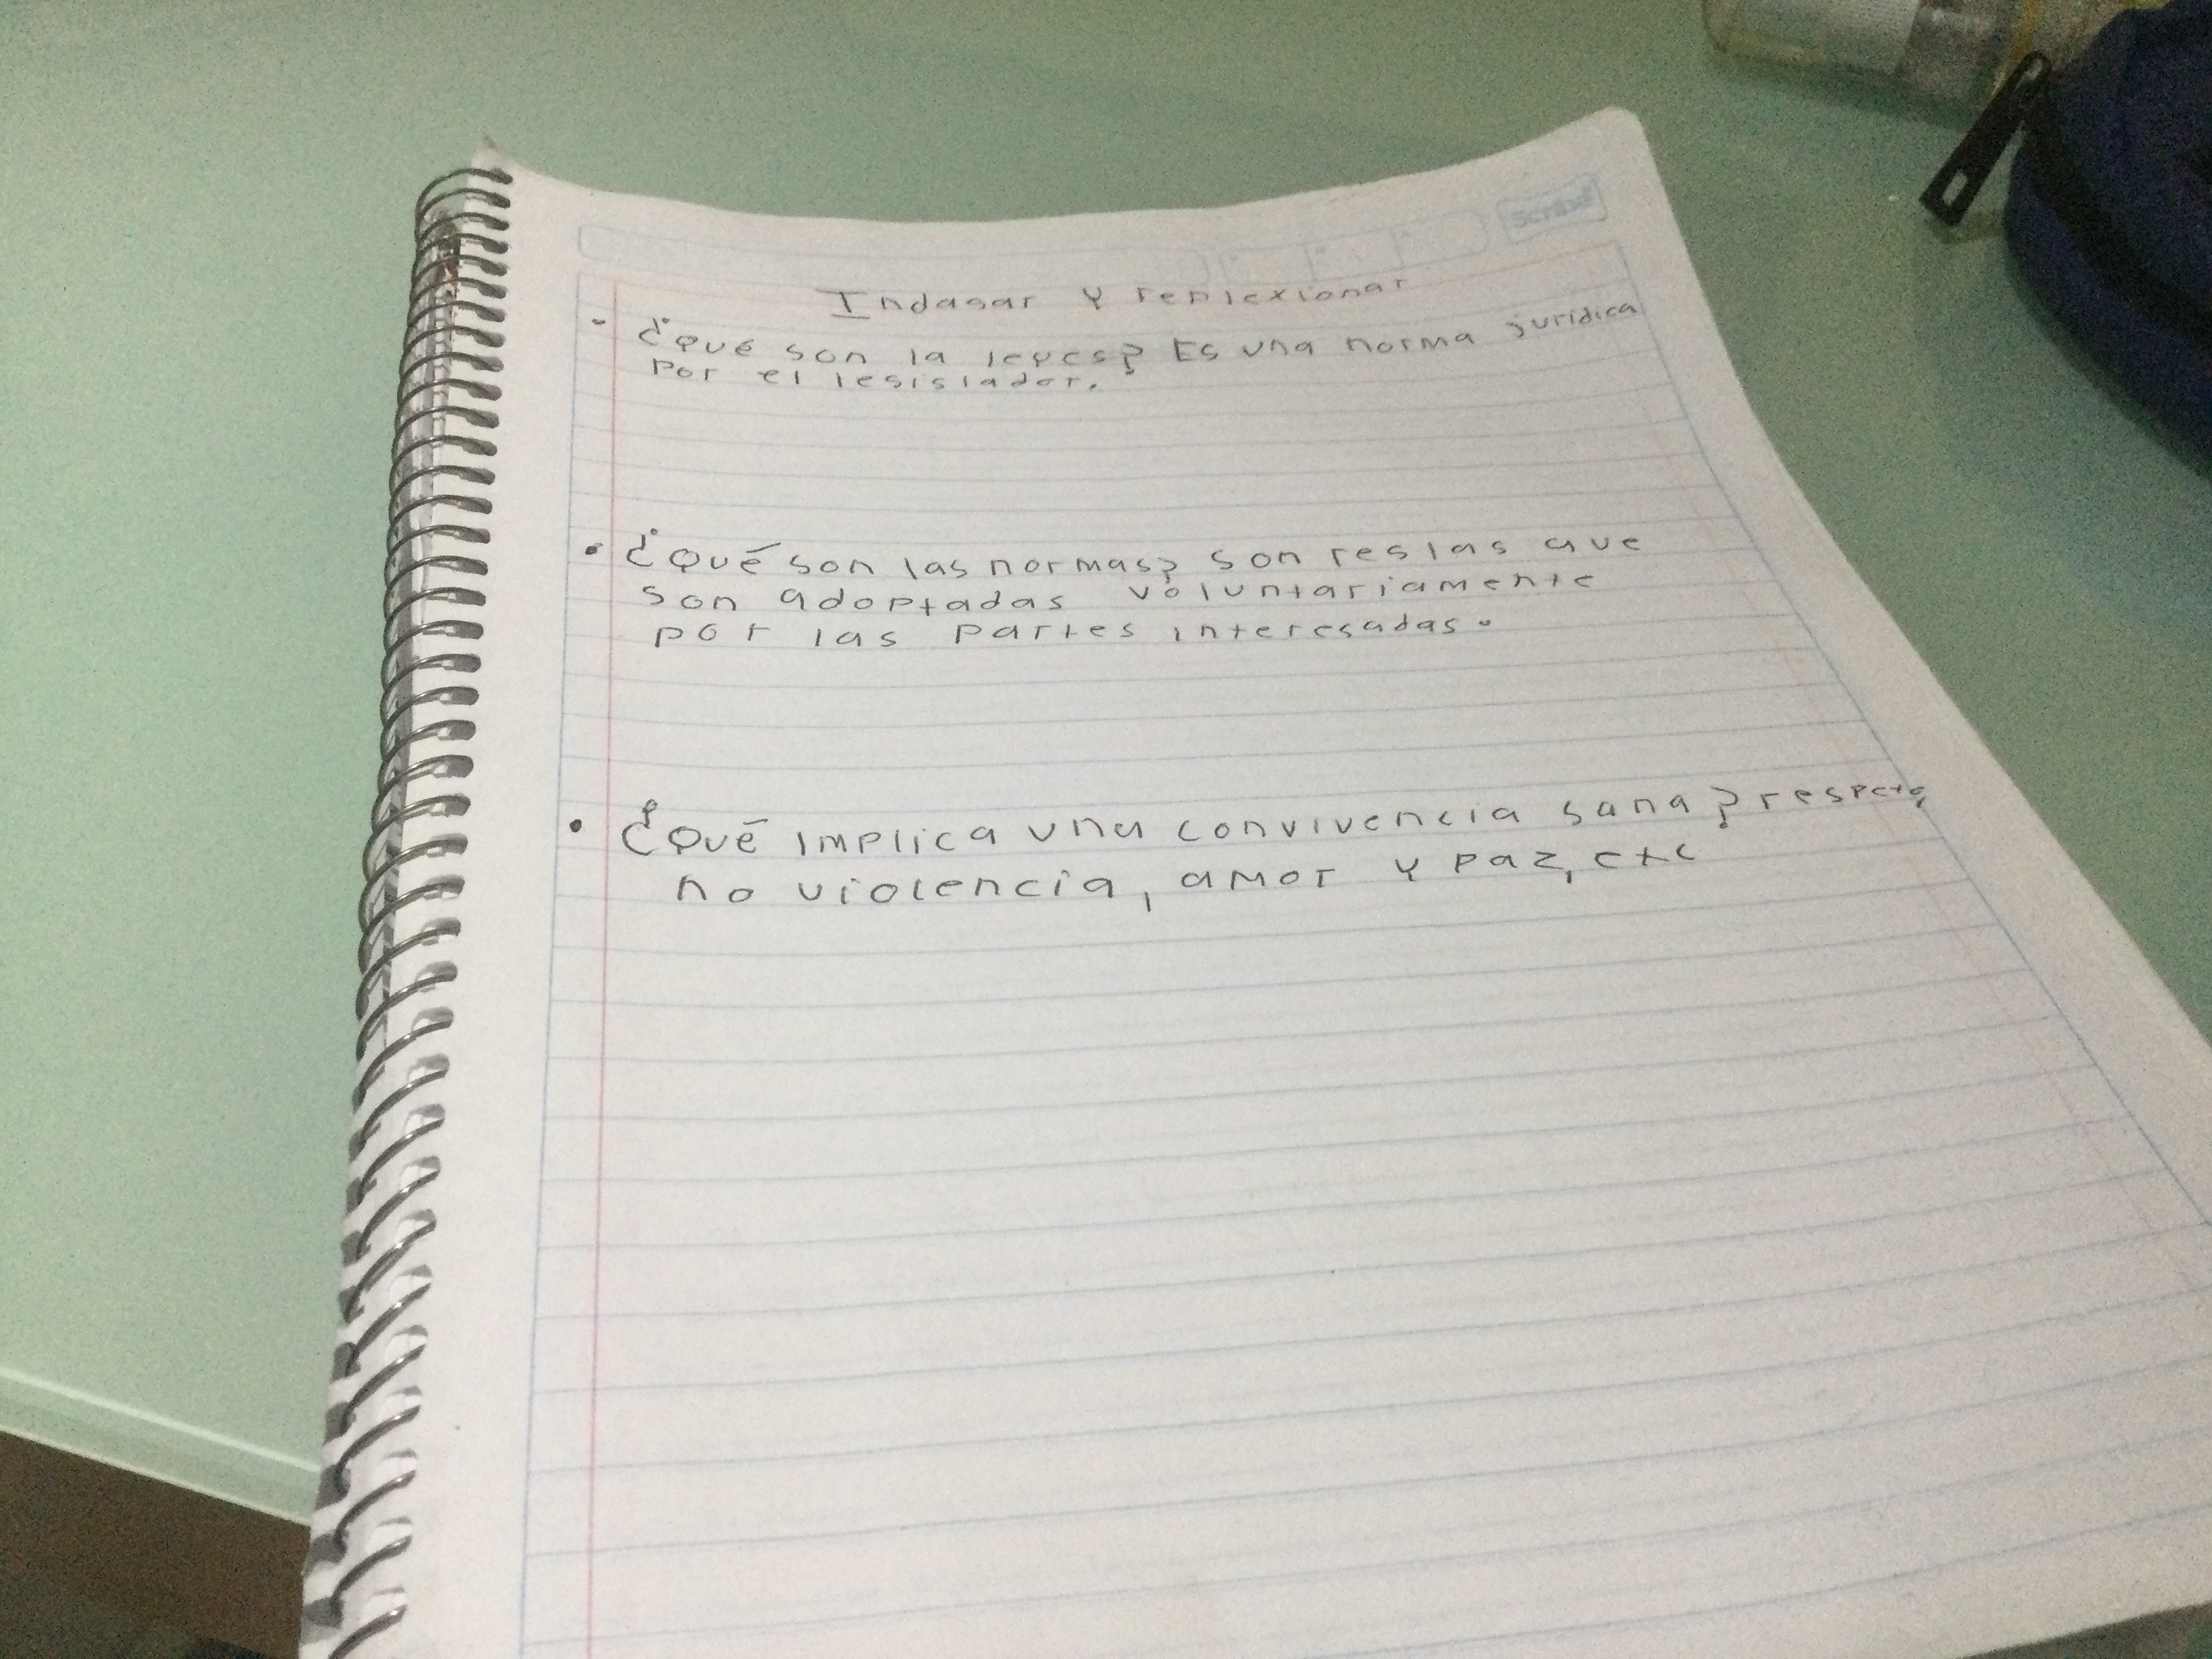 Scribe
Indagar y reflexionar
- ¿Qué son la leyes? Es una norma jurídica
por el legislador.
• ¿Qué son las normas? son reglas que
son adoptadas voluntariamente
por las partes interesadas.
• ¿Qué implica una convivencia sana? respeto,
no violencia, amor y paz, etc